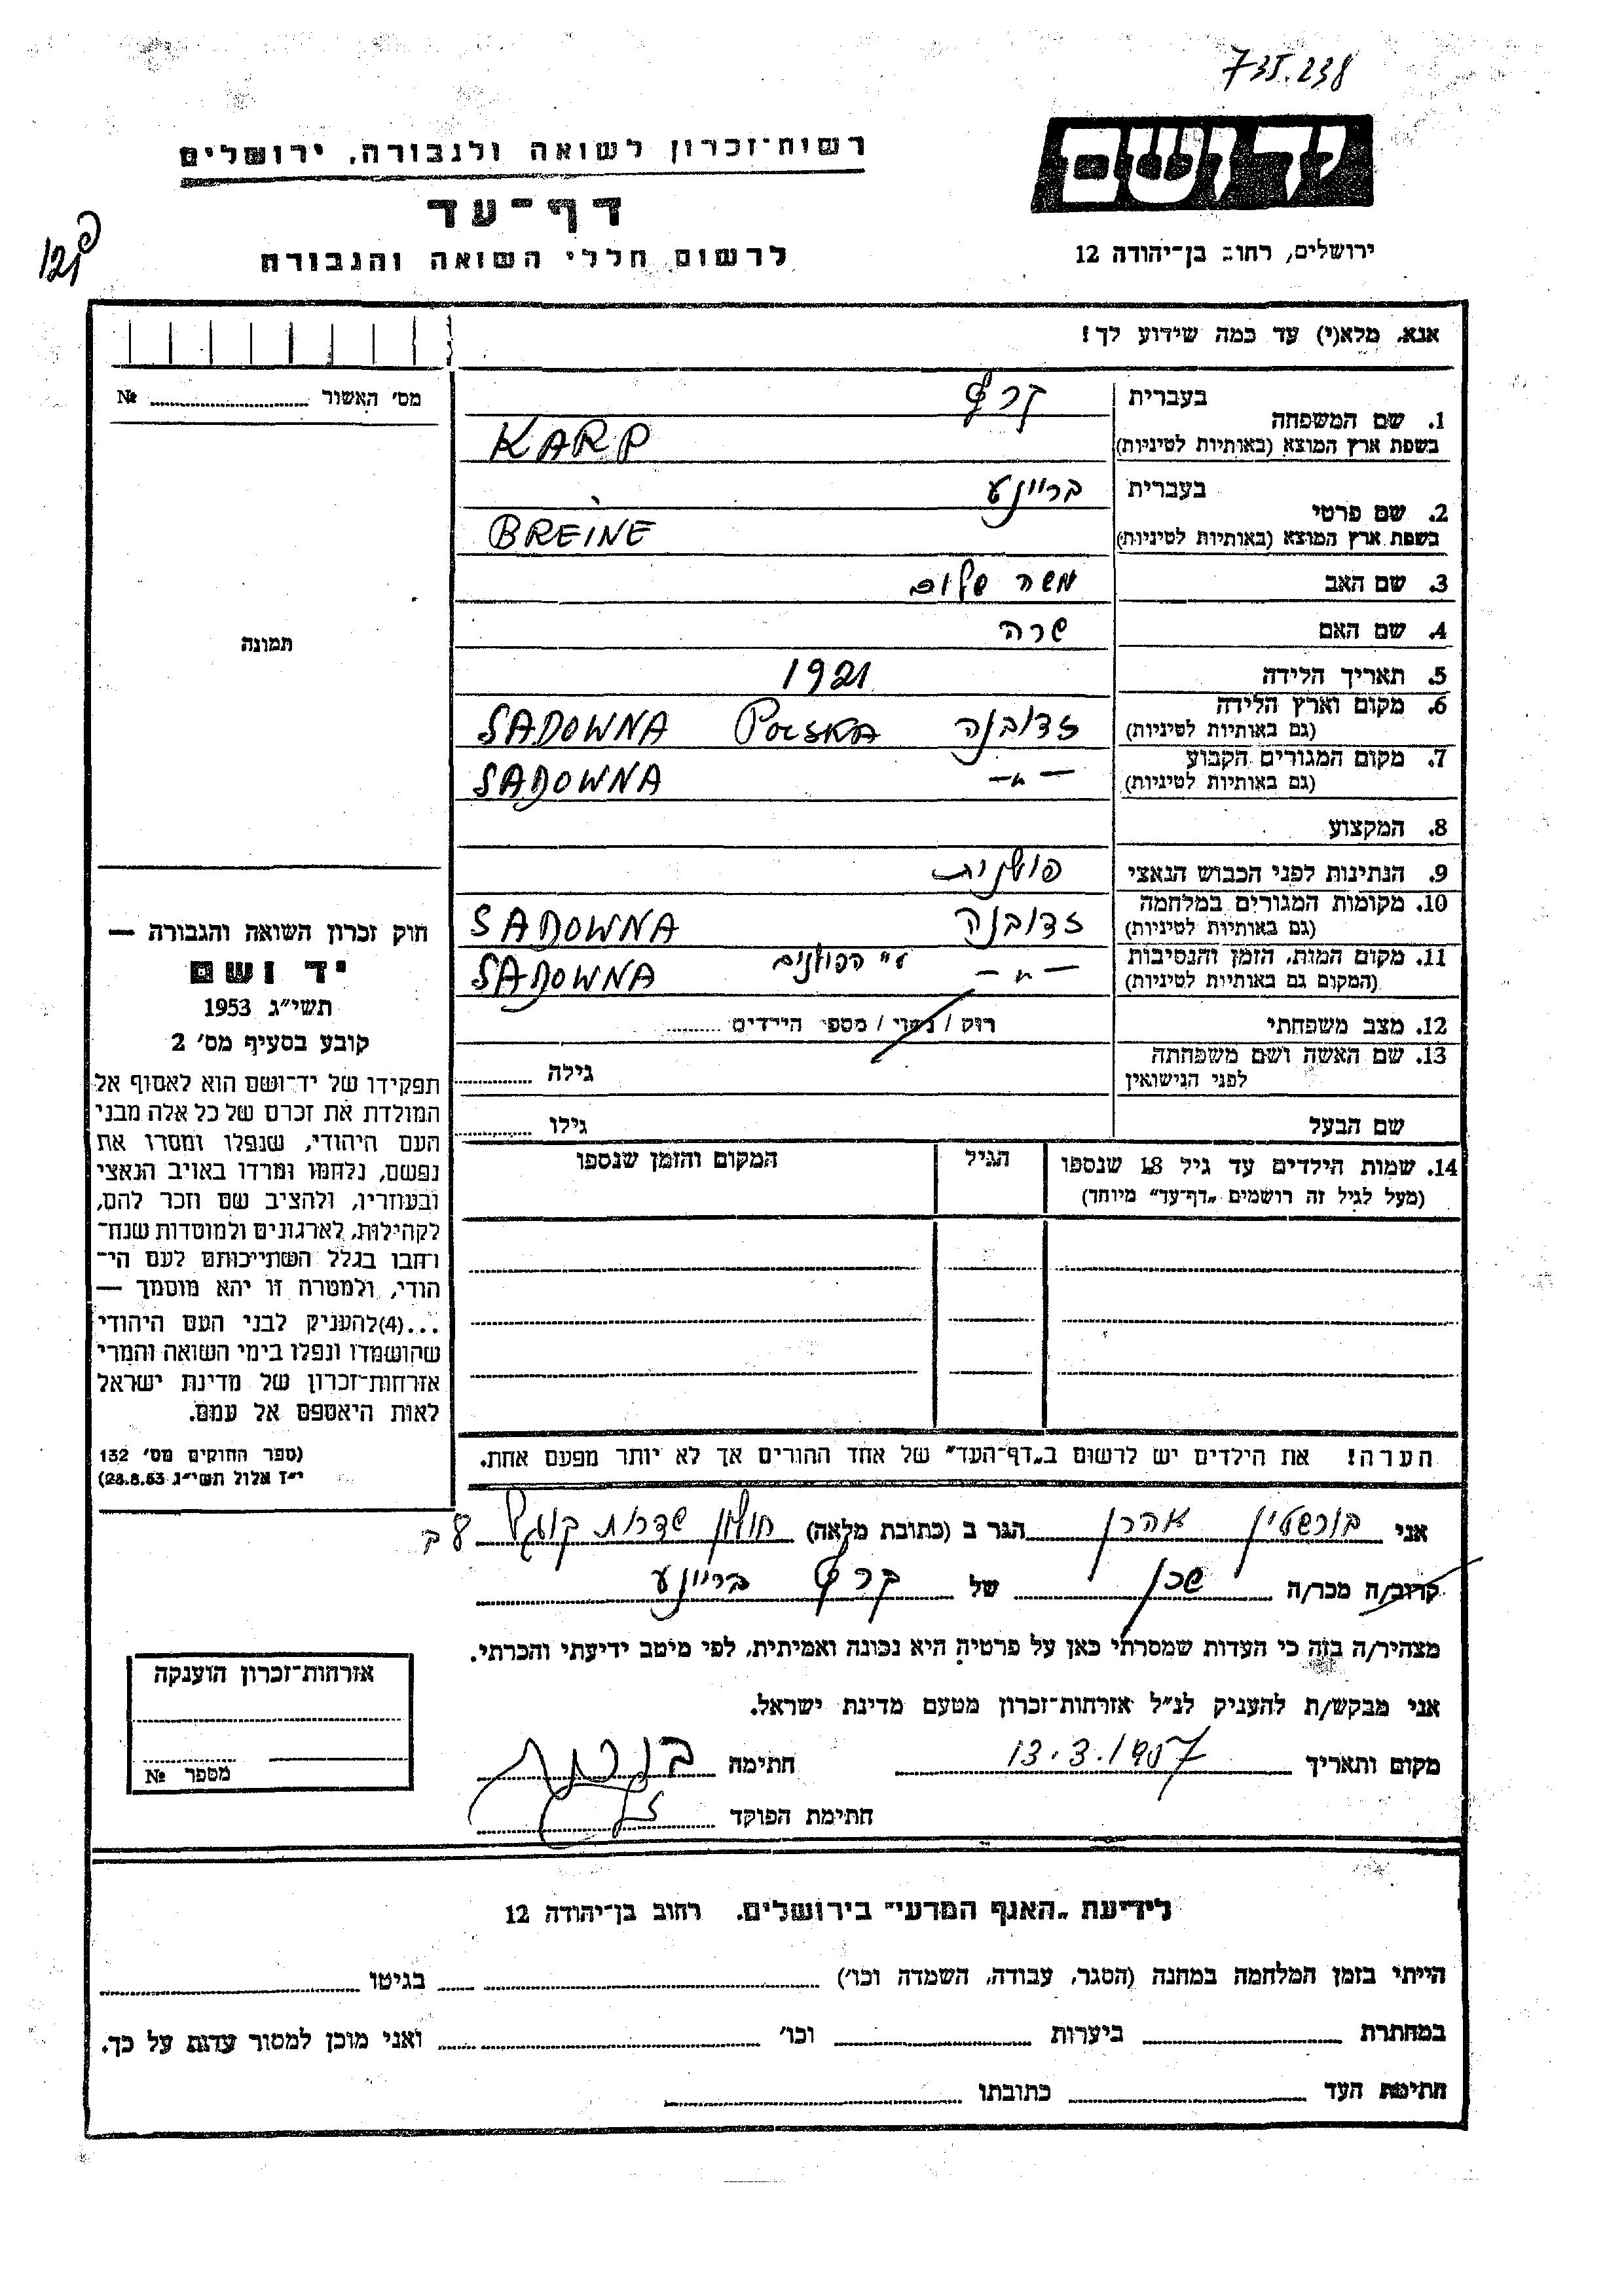 735.238
יד ושם
רשות־זכרון לשואה ולגבורה, ירושלים
דף־עד
לרשום חללי השואה והגבורה
ירושלים, רחוב בן־יהודה 12
121
אנא, מלא(י) עד כמה שידוע לך!
מס' האשור № ........
1. שם המשפחה
בעברית קרפ
בשפת ארץ המוצא (באותיות לטיניות) KARP
2. שם פרטי
בעברית בריינע
בשפת ארץ המוצא (באותיות לטיניות) BREINE
3. שם האב משה שלום
4. שם האם שרה
5. תאריך הלידה 1921
6. מקום וארץ הלידה
(גם באותיות לטיניות) זדובנה POLSKA SADOWNA
7. מקום המגורים הקבוע
(גם באותיות לטיניות) —״— SADOWNA
8. המקצוע
9. הנתינות לפני הכבוש הנאצי פולנית
10. מקומות המגורים במלחמה
(גם באותיות לטיניות) זדובנה SADOWNA
11. מקום המות, הזמן והנסיבות
(המקום גם באותיות לטיניות) —״— ע״י הפולנים SADOWNA
12. מצב משפחתי רווק / נשוי / מספר הילדים ........
13. שם האשה ושם משפחתה
לפני הנישואין גילה ........
שם הבעל גילו ........
14. שמות הילדים עד גיל 18 שנספו
(מעל לגיל זה רושמים „דף־עד" מיוחד)
הגיל
המקום והזמן שנספו
תמונה
חוק זכרון השואה והגבורה —
יד ושם
תשי״ג 1953
קובע בסעיף מס' 2
תפקידו של יד־ושם הוא לאסוף אל
המולדת את זכרם של כל אלה מבני
העם היהודי, שנפלו ומסרו את
נפשם, נלחמו ומרדו באויב הנאצי
ובעוזריו, ולהציב שם וזכר להם,
לקהילות, לארגונים ולמוסדות שנח־
רחבו בגלל השתייכותם לעם הי־
הודי, ולמטרה זו יהא מוסמך —
...(4)להעניק לבני העם היהודי
שהושמדו ונפלו בימי השואה והמרי
אזרחות־זכרון של מדינת ישראל
לאות היאספם אל עמם.
(ספר החוקים מס' 132
י״ז אלול תשי״ג 28.8.53)
הערה! את הילדים יש לרשום ב„דף־העד" של אחד ההורים אך לא יותר מפעם אחת.
אני בורשטין אהרן הגר ב (כתובת מלאה) חולון שדרות קוגל
קרוב/ה מכר/ה שכן של קרפ בריינע
מצהיר/ה בזה כי העדות שמסרתי כאן על פרטיה היא נכונה ואמיתית, לפי מיטב ידיעתי והכרתי.
אני מבקש/ת להעניק לנ״ל אזרחות־זכרון מטעם מדינת ישראל.
מקום ותאריך 13.3.1957 חתימה
חתימת הפוקד
אזרחות־זכרון הוענקה
מספר №
לידיעת „האגף המדעי" בירושלים. רחוב בן־יהודה 12
הייתי בזמן המלחמה במחנה (הסגר, עבודה, השמדה וכו') ........ בגיטו ........
במחתרת ........ ביערות ........ וכו' ........ ואני מוכן למסור עדות על כך.
חתימת העד ........ כתובתו ........